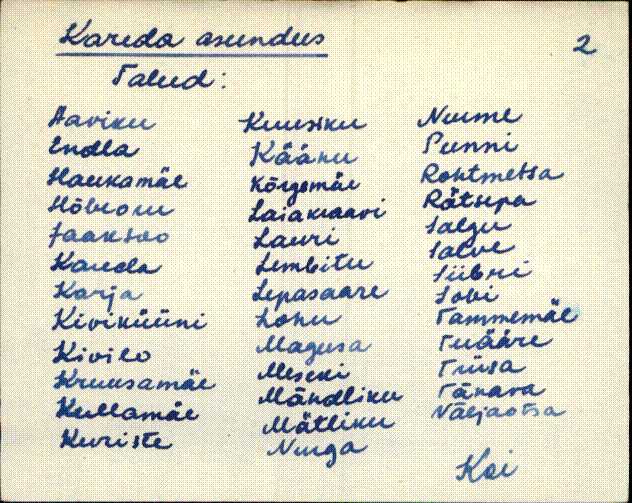 Kareda asundus 2
Talud:
Aaviku
Endla
Haukamäe
Hõbeoru
Jaaksoo
Kareda
Karja
Kiviküüni
Kivilo
Kruusamäe
Kullamäe
Kuriste
Kuusiku
Käänu
Kõrgemäe
Laiakraavi
Lauri
Lembitu
Lepasaare
Lohu
Magusa
Meseki
Mändliku
Mätliku
Nurga
Nurme
Punni
Rohtmetsa
Rätsepa
Salgu
Salve
Siibri
Sobi
Tammemäe
Tuääre
Tüüsa
Tänava
Väljaotsa
Koi